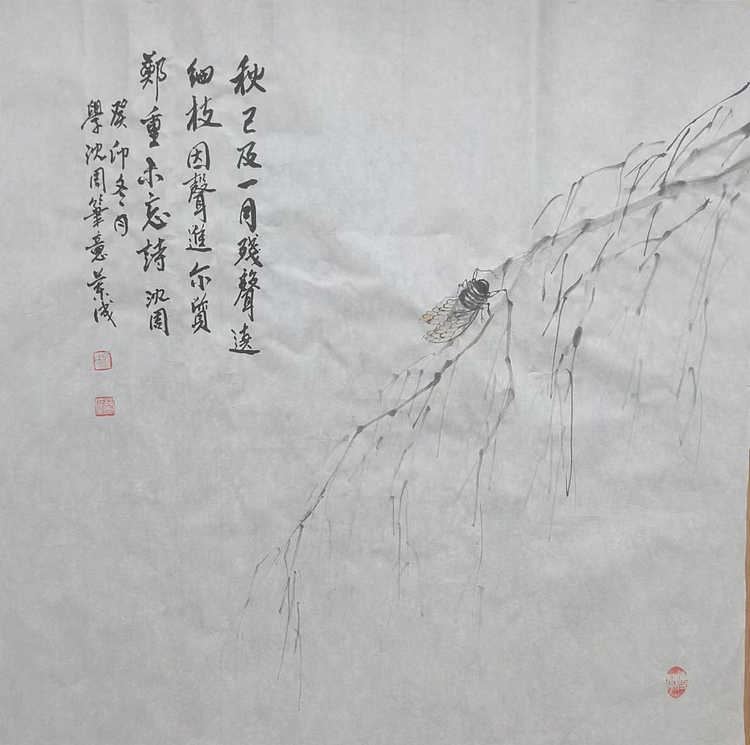 秋已及一月殘聲遶
細枝因聲進尔質
鄭重未忘詩沈周
癸卯冬月
學沈周筆意